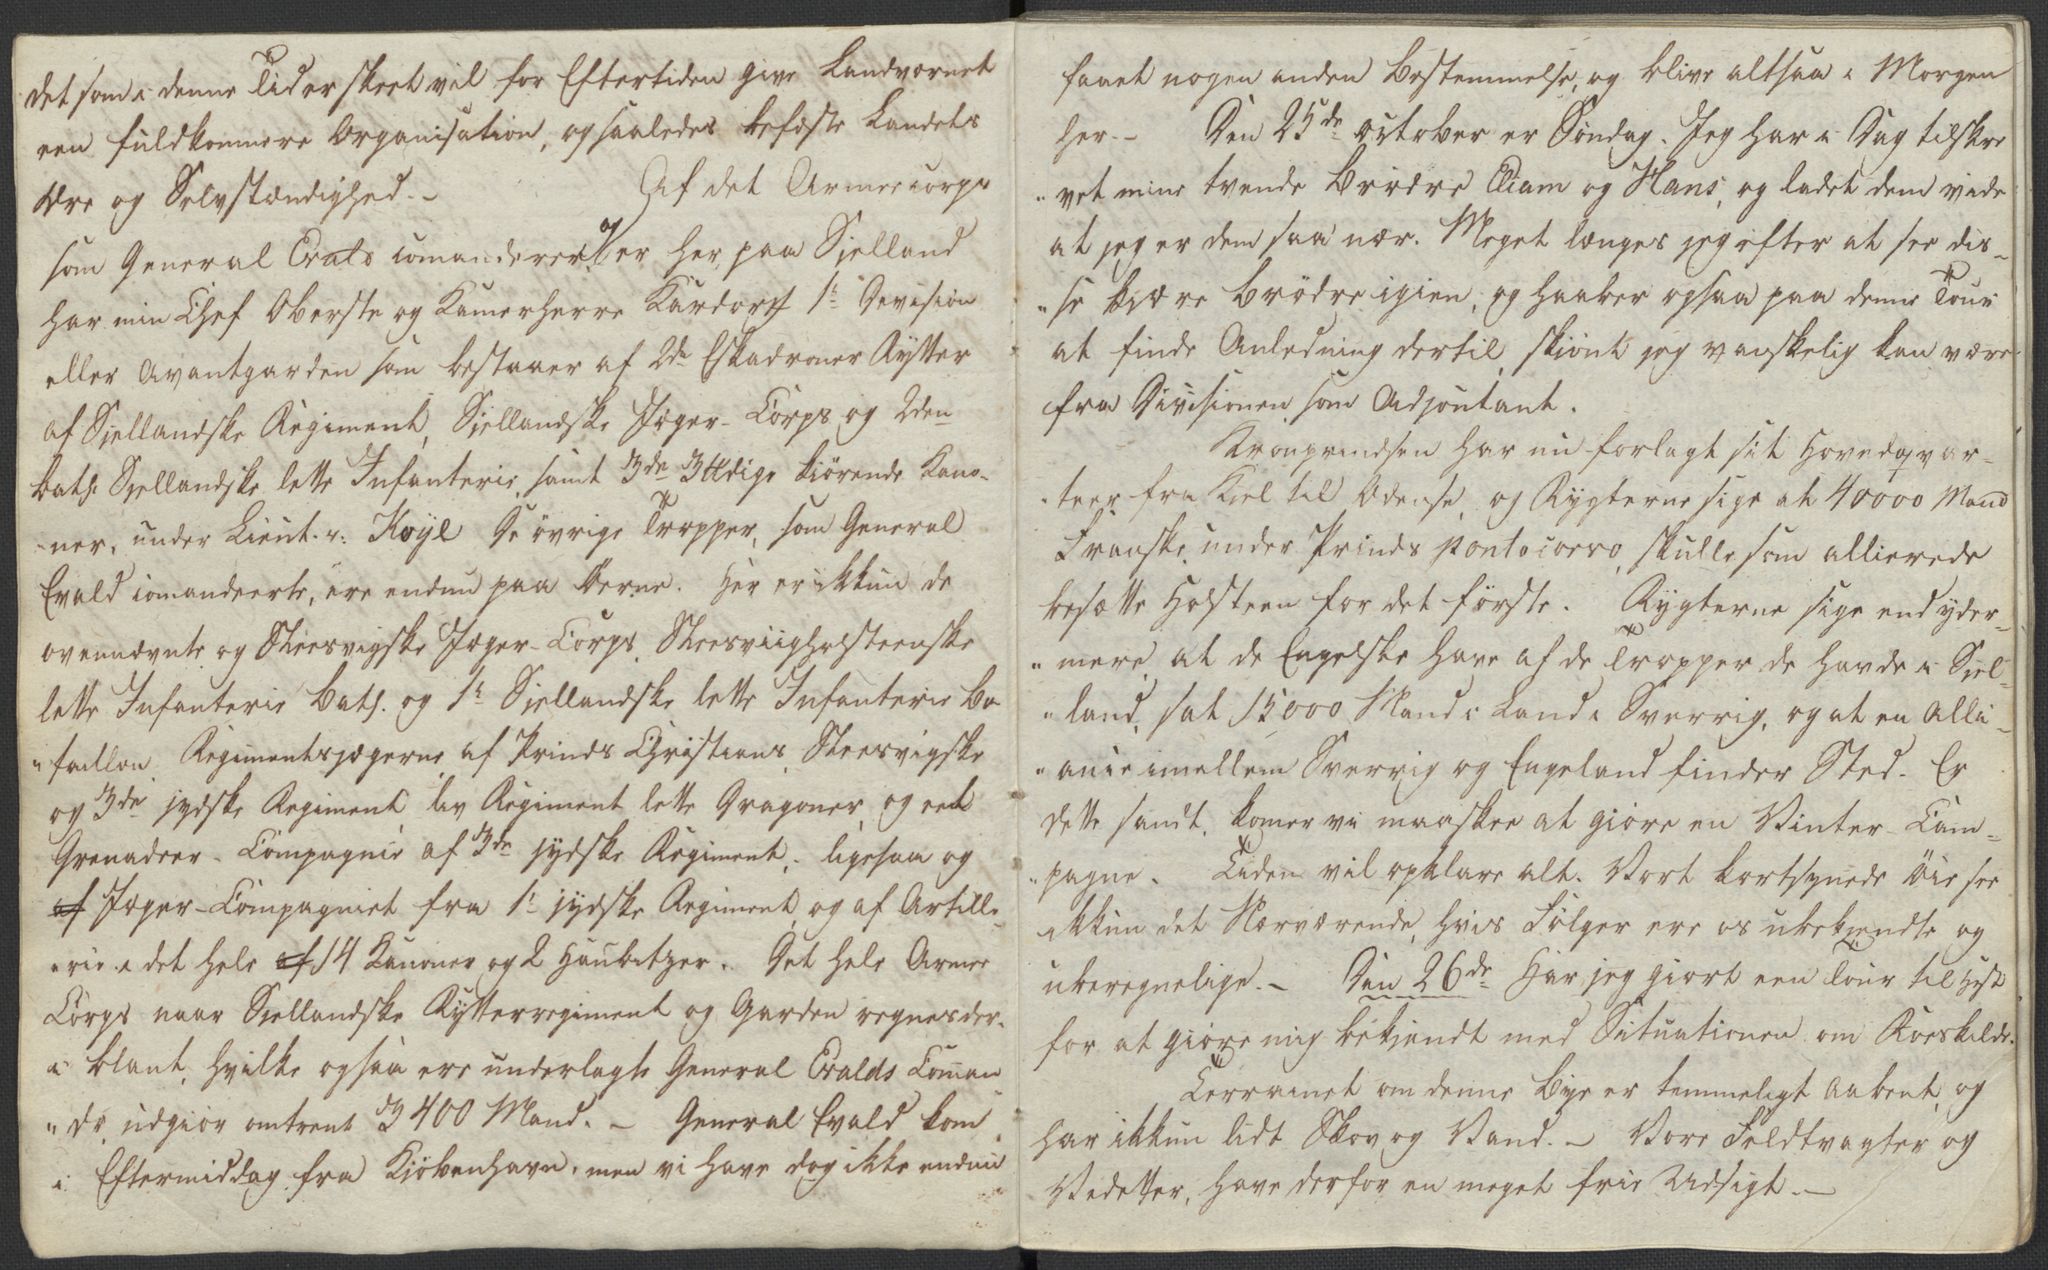 det som i denne Tid er skeet vil for Eftertiden give Landværnet
een fuldkomnere Organisation, og saaledes befæste Landets
Ære og Selvstændighed. – Af det Armeecorps
som General Evalds comanderer, og er her paa Sjelland
har min Chef Oberste og Kamerherre Kardorff 1te Devision
eller Avantgarden som bestaaer af 2de Eskadroner Rytter
af Sjellandske Regiment, Sjellandske Jæger-Corps og 2den
Batl. Sjellandske lette Infanterie, samt 3de 3 ℔dige kiörende Kano-
ner, under Lieut. v: Køyl De övrige Tropper, som General
Evald comandeerte, ere endnu paa Øerne. Her er ikkun de
ovennævnte og Sleesvigske Jæger-Corps, Sleesviigholsteenske
lette Infanterie Batl. og 1te Sjellandske lette Infanterie Ba-
"taillon, Regimentsjægerne af Prinds Christians, Sleesvigske
og 3de jydske Regiment, Liv Regiment lette Dragoner, og eet
Grenadeer-Compagnie af 3de jydske Regiment; ligesaa og
af Jæger-Compagniet fra 1te jydske Regiment, og af Artille-
"rie i det hele af 14 Kanoner og 2 Haubitzer. Det hele Armee
Corps naar Sjellandske Rytterregiment og Garden regnes der-
i blant, hvilke ogsaa ere underlagte General Evalds Coman-
"do, udgiör omtrent 3400 Mand. – General Evald kom
i Eftermiddag fra Kiöbenhavn, men vi have dog ikke endnu
faaet nogen anden Bestemmelse, og blive altsaa i Morgen
her. – Den 25de October er Söndag. Jeg har i Dag tilskre
"vet mine tvende Brödre Tiam og Hans, og ladet dem vide
at jeg er dem saa nær. Meget længes jeg efter at see dis-
"se kiære Brödre igien, og haaber ogsaa paa denne Tour
at finde Anledning dertil, skiönt jeg vanskelig kan være
fra Divisionen som Adjoutant.
Kronprindsen har nu forlagt sit Hovedqvar-
"teer fra Kiel til Odense, og Rygterne sige at 40000 Mand
Franske under Prinds Pontocorvo, skulle som allierede
besætte Holsteen for det förste. Rygterne sige end yder-
"mere, at de Engelske have af de Tropper de havde i Sjel-
"land, sat 15000 Mand i Land i Sverrig, og at en Alli-
"ance imellem Sverrig og Engeland finder Sted. Er
dette sandt, komer vi maaskee at giöre en Vinter-Cam-
"pagne. Tiden vil opklare alt. Vort kortsynede Öie see
ikkun det Nærværende, hvis Fölger ere os ubekjendte og
uberegnelige. – Den 26de Har jeg giort een Tour til Hest
for at giöre mig bekjendt med Situationen om Roeskilde.
Terrainet om denne Bye er temmeligt aabent, og
har ikkun lidt Skov og Vand. – Vore Feldtvagter og
Vedetter, have derfor en meget frie Udsigt. –